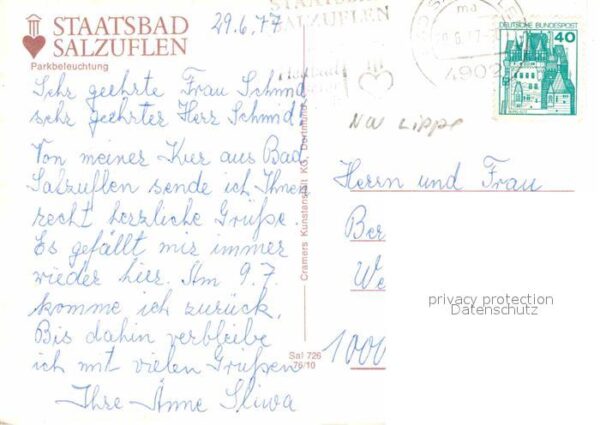 STAATSBAD
SALZUFLEN
Parkbeleuchtung
29.6.77
Sehr geehrte Frau Schmid
sehr geehrter Herr Schmid!
Von meiner Kur aus Bad
Salzuflen sende ich Ihnen
recht herzliche Grüße.
Es gefällt mir immer
wieder hier. Am 9.7.
komme ich zurück.
Bis dahin verbleibe
ich mit vielen Grüßen
Ihre Änne Sliwa
Cramers Kunstanstalt KG, Dortmund
Sal 726
76/10
STAATSBAD
SALZUFLEN
4902
DEUTSCHE BUNDESPOST
40
NW LIPPE
Herrn und Frau
Ber
We
1000
privacy protection
Datenschutz